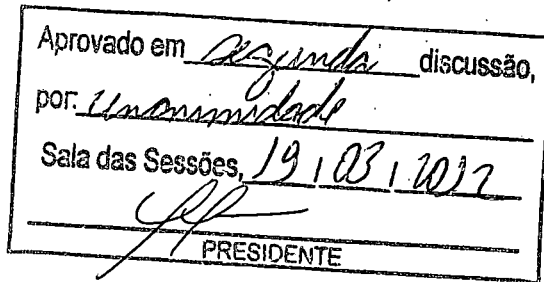 Aprovado em segunda discussão,
por: unanimidade
Sala das Sessões, 19 / 03 /
PRESIDENTE